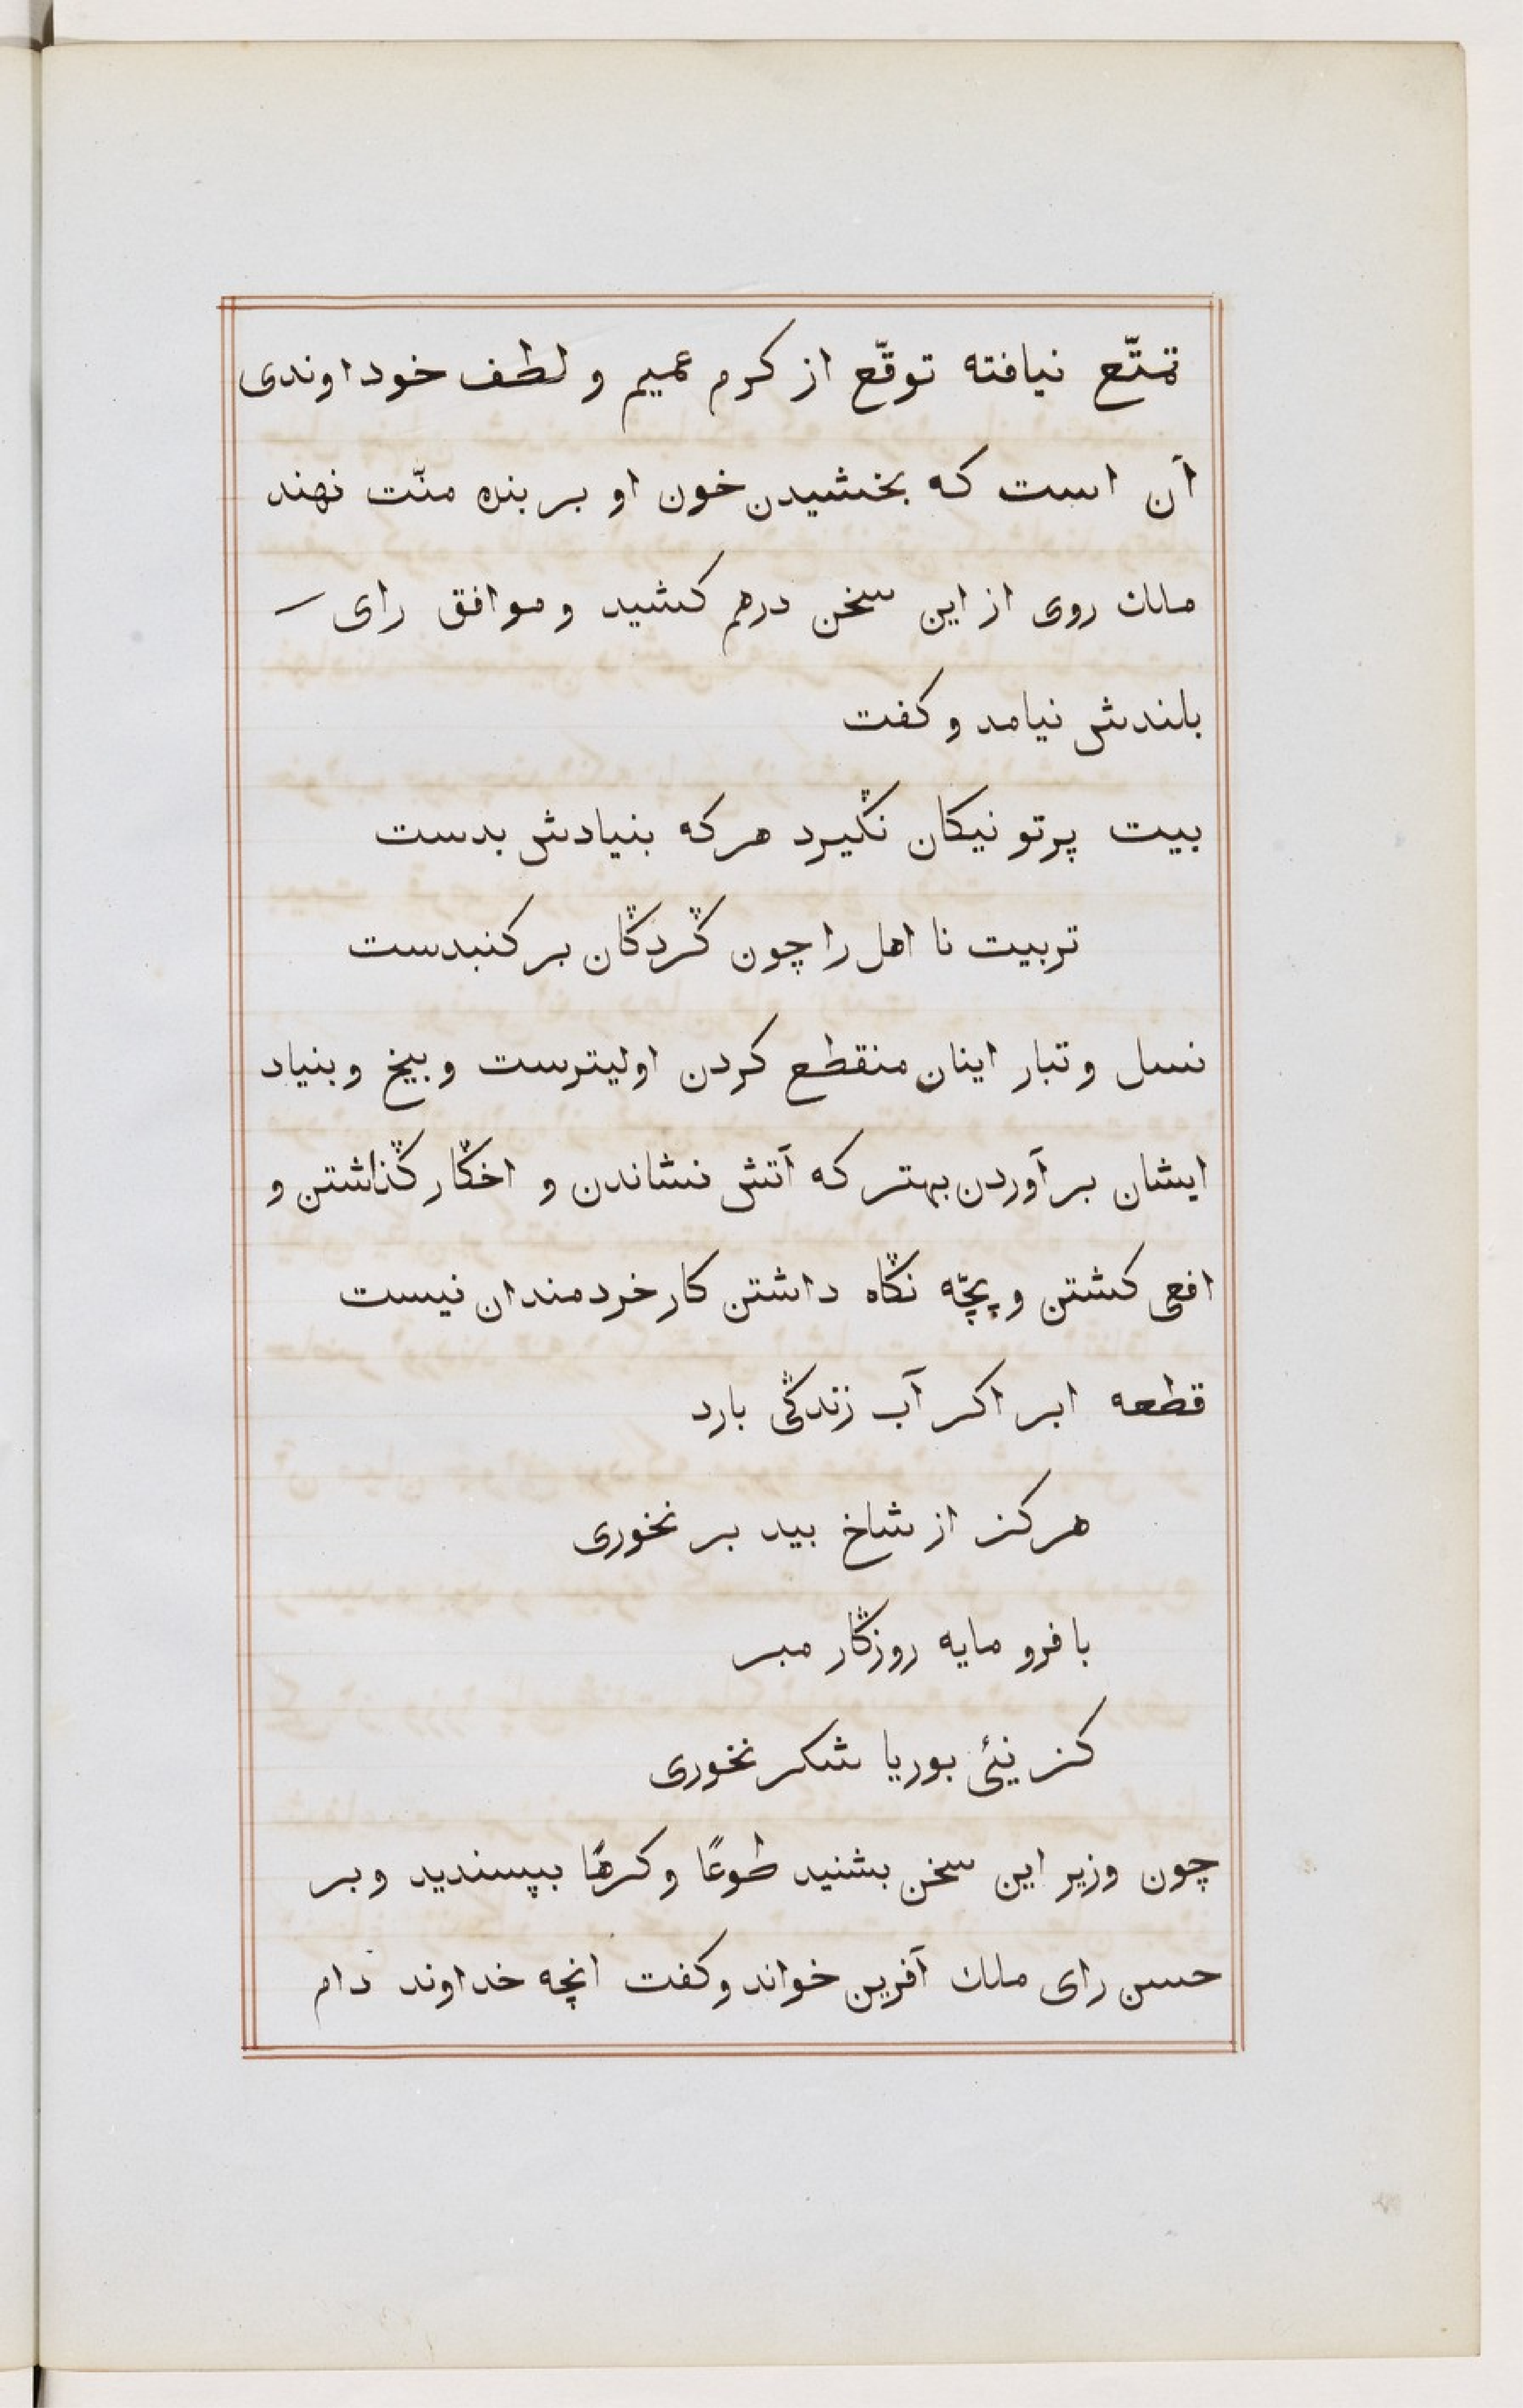 تمتّع نیافته توقّع از کرم عمیم و لطف خود اوندی
آن است که بخشیدن خون او بر بنده منّت نهند
ملك روی از این سخن درهم کشید و موافق رای
بلندش نیامد و کفت
بیت پرتو نیکان نگیرد هر که بنیادش بدست
تربیت نا اهل را چون گردگان بر کنبدست
نسل و تبار اینان منقطع کردن اولیترست و بیخ و بنیاد
ایشان بر آوردن بهتر که آتش نشاندن و اخگار گذاشتن و
افعی کشتن و بچّه نگاه داشتن کار خردمندان نیست
قطعه ابر اکر آب زندگی بارد
هرکز از شاخ بید بر نخوری
با فرو مایه روزگار مبر
کز نیٔی بوریا شکر نخوری
چون وزیر این سخن بشنید طوعًا و کرهًا بپسندید و بر
حسن رای ملك آفرین خواند و کفت انچه خداوند دام